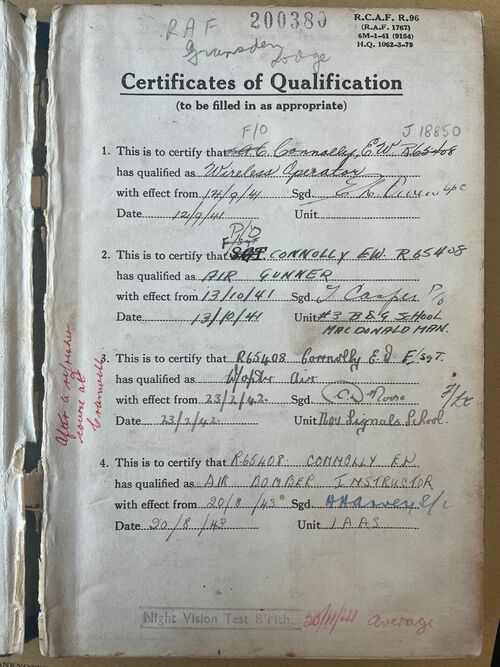 RAF
Gransden
Lodge
200380
R.C.A.F. R.96
(R.A.F. 1767)
6M-1-41 (9154)
H.Q. 1062-3-79
Certificates of Qualification
(to be filled in as appropriate)
F/O
J 18850
1. This is to certify that LAC. Connolly, E.W. R65408
has qualified as Wireless Operator
with effect from 12/9/41 Sgd.
Date 12/9/41 Unit
P/O
F/Sgt
2. This is to certify that SGT CONNOLLY EW. R65408
has qualified as AIR GUNNER
with effect from 13/10/41 Sgd. J Casper P/O
Date 13/10/41 Unit #3 B & G SCHOOL
MACDONALD MAN.
3. This is to certify that R65408 Connolly E.W. F/Sgt.
has qualified as W/optr Air
with effect from 23/2/42 Sgd. Moore F/Lt
Date 23/2/42 Unit No 1 Signals School.
After a refresher
course at
Cranwell
4. This is to certify that R65408 CONNOLLY EW
has qualified as AIR BOMBER INSTRUCTOR
with effect from 20/8/43 Sgd. AHarvey
Date 20/8/43 Unit 1 AAS
Night Vision Test B'Mth. 20/11/41 average